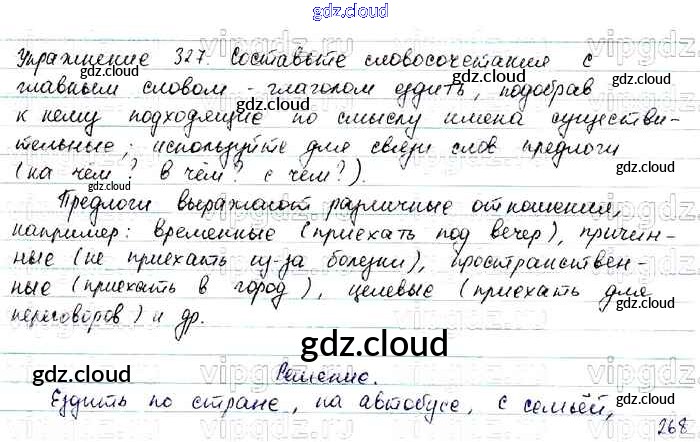 gdz.cloud
Упражнение 327. Составьте словосочетания с
главным словом - глаголом ездить, подобрав
к нему подходящие по смыслу имена существи-
тельные; используйте для связи слов предлоги
(на чём? в чём? с чем?).
Предлоги выражают различные отношения,
например: временные (приехать под вечер), причин-
ные (не приехать из-за болезни), пространствен-
ные (приехать в город), целевые (приехать для
переговоров) и др.
gdz.cloud
Решение.
Ездить по стране, на автобусе, с семьёй,
268